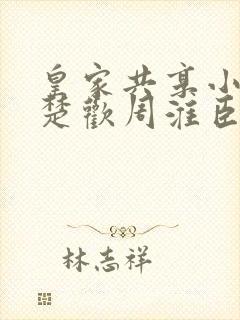 皇家共享小
楚歡周淮臣
林志祥